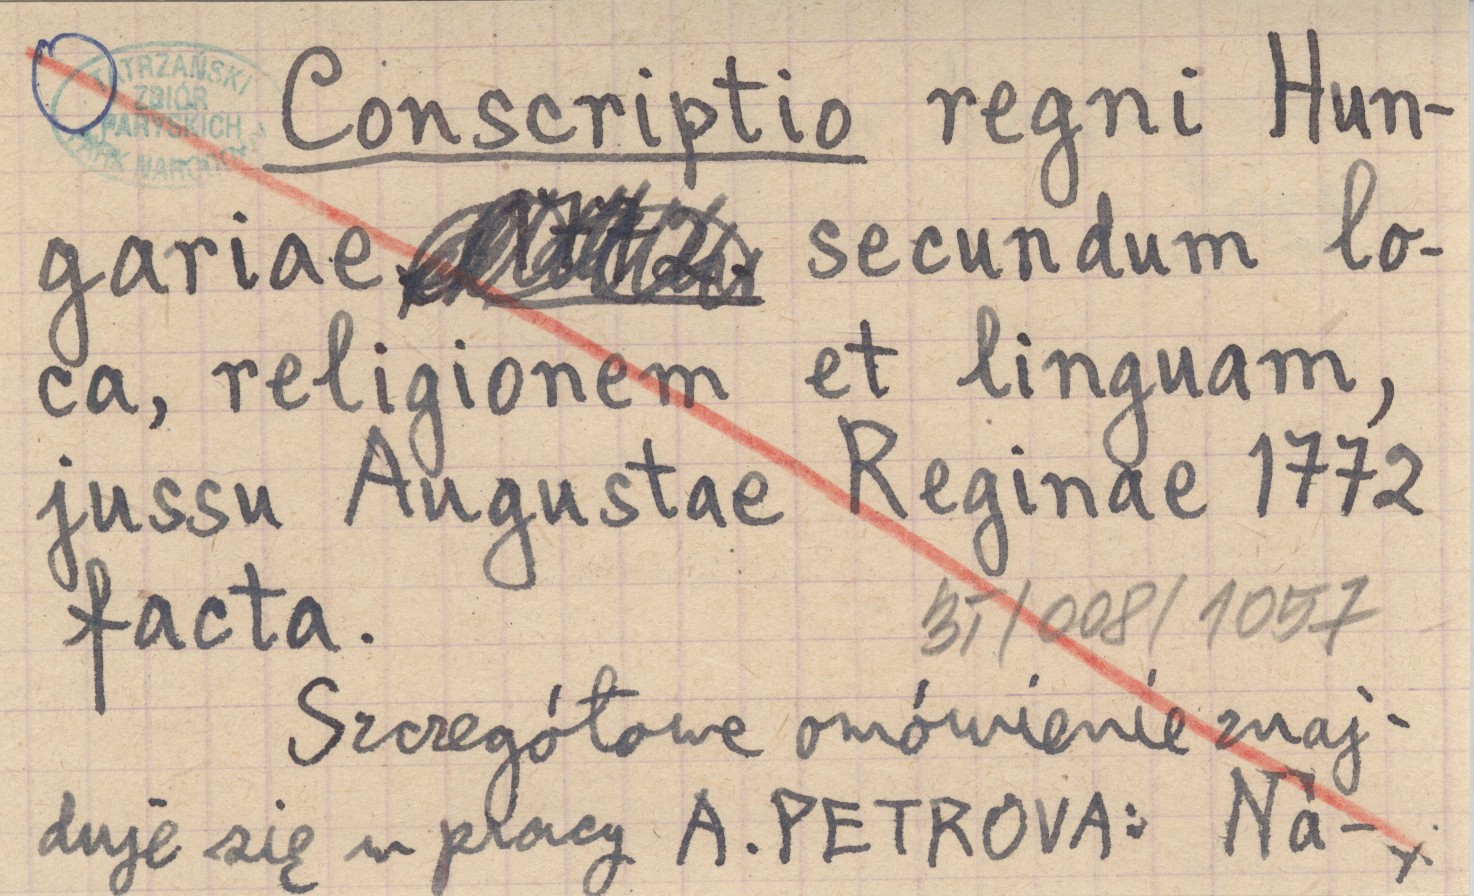 TATRZAŃSKI
ZBIÓR
PARYSKICH
PARK NARODOWY
Conscriptio regni Hun-
gariae secundum lo-
ca, religionem et linguam,
jussu Augustae Reginae 1772
facta.
/008/1057
Szczegółowe omówienie znaj-
duje się w pracy A. PETROVA: Ná-